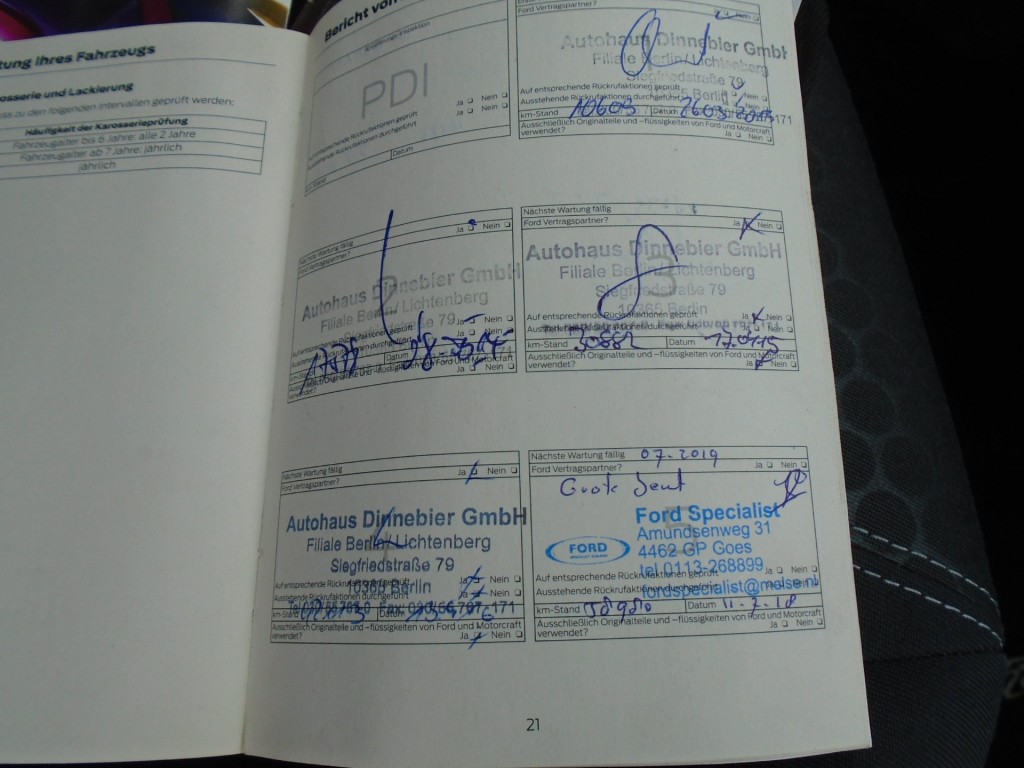 tung Ihres Fahrzeugs
osserie und Lackierung
ss zu den folgenden Intervallen geprüft werden:
Häufigkeit der Karosserieprüfung
Fahrzeugalter bis 6 Jahre: alle 2 Jahre
Fahrzeugalter ab 7 Jahre: jährlich
jährlich
Bericht von
PDI
entsprechende Rückrufaktionen geprüft
Ja Nein
Ausstehende Rückrufaktionen durchgeführt
Ja Nein
km-Stand
Datum
Ford Vertragspartner?
Ja Nein
Autohaus Dinnebier GmbH
Filiale Berlin/Lichtenberg
Siegfriedstraße 79
Auf entsprechende Rückrufaktionen geprüft
Ausstehende Rückrufaktionen durchgeführt
km-Stand 10603 Datum
Ausschließlich Originalteile und -flüssigkeiten von Ford und Motorcraft
verwendet?
Ja Nein
Nächste Wartung fällig
Ja Nein
Ford Vertragspartner?
2
Autohaus Dinnebier GmbH
Filiale Berlin/Lichtenberg
Siegfriedstraße 79
Auf entsprechende Rückrufaktionen geprüft
Ja Nein
Ausstehende Rückrufaktionen durchgeführt
Datum
Ausschließlich Originalteile und -flüssigkeiten von Ford und Motorcraft
verwendet?
Ja Nein
Nächste Wartung fällig
Ford Vertragspartner?
Ja Nein
3
Autohaus Dinnebier GmbH
Filiale Berlin/Lichtenberg
Siegfriedstraße 79
10365 Berlin
Auf entsprechende Rückrufaktionen geprüft
Ja Nein
km-Stand Datum
Ausschließlich Originalteile und -flüssigkeiten von Ford und Motorcraft
verwendet?
Ja Nein
Nächste Wartung fällig
Ja Nein
Ford Vertragspartner?
4
Autohaus Dinnebier GmbH
Filiale Berlin/Lichtenberg
Siegfriedstraße 79
10365 Berlin
Auf entsprechende Rückrufaktionen geprüft
Ja Nein
Ausstehende Rückrufaktionen durchgeführt
Ja Nein
km-Stand Datum
Ausschließlich Originalteile und -flüssigkeiten von Ford und Motorcraft
verwendet?
Ja Nein
Nächste Wartung fällig 07-2019
Ford Vertragspartner?
Ja Nein
Groote beurt
5
Ford Specialist
Amundsenweg 31
FORD
4462 GP Goes
tel.0113-268899
Auf entsprechende Rückrufaktionen geprüft
Ja Nein
Ausstehende Rückrufaktionen durchgeführt
fordspecialist@molse.nl
km-Stand 58980 Datum 11-7-18
Ausschließlich Originalteile und -flüssigkeiten von Ford und Motorcraft
verwendet?
Ja Nein
21